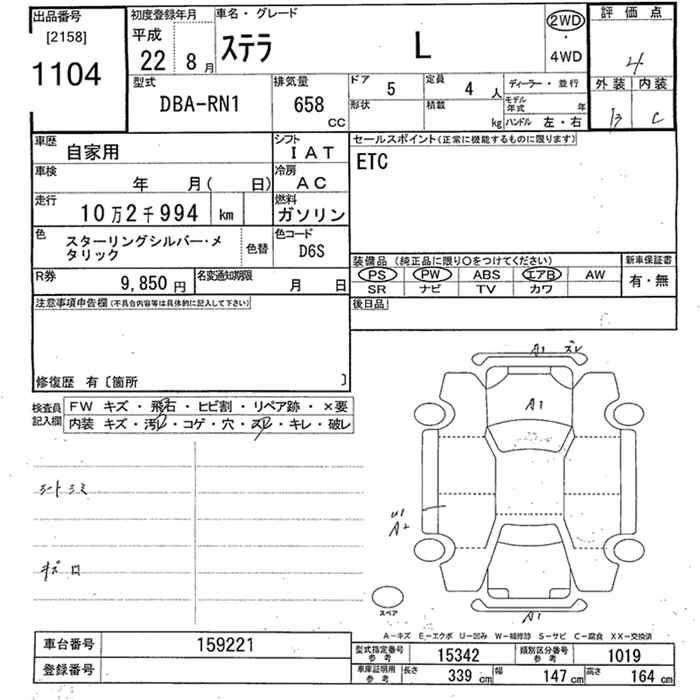 出品番号
[2158]
1104
初度登録年月
平成
22 8月
車名・グレード
ステラ L
2WD
・
4WD
評価点
4
外装 内装
B C
型式
DBA-RN1
排気量
658
CC
ドア 5
定員 4 人
ディーラー・並行
形状
積載 kg
モデル年式 年
ハンドル 左・右
車歴 自家用
シフト IAT
車検 年 月( 日)
冷房 AC
走行 10万2千994 km
燃料 ガソリン
色 スターリングシルバー・メタリック
色替
色コード D6S
R券 9,850円
名変通知期限 月 日
セールスポイント(正常に機能するものに限ります)
ETC
装備品 (純正品に限り○をつけてください)
新車保証書
PS PW ABS エアB AW
有・無
SR ナビ TV カワ
後日品
注意事項申告欄(不具合内容等は具体的に記入して下さい)
修復歴 有〔箇所 〕
検査員記入欄
FW キズ・飛石・ヒビ割・リペア跡・×要
内装 キズ・汚レ・コゲ・穴・スレ・キレ・破レ
シートシミ
キズ
A1 スレ
A1
U1
A2
A1
スペア
A-キズ E-エクボ U-凹み W-補修跡 S-サビ C-腐食 XX-交換済
車台番号 159221
登録番号
型式指定番号 参考 15342
類別区分番号 参考 1019
車庫証明用 参考
長さ 339cm
幅 147cm
高さ 164cm